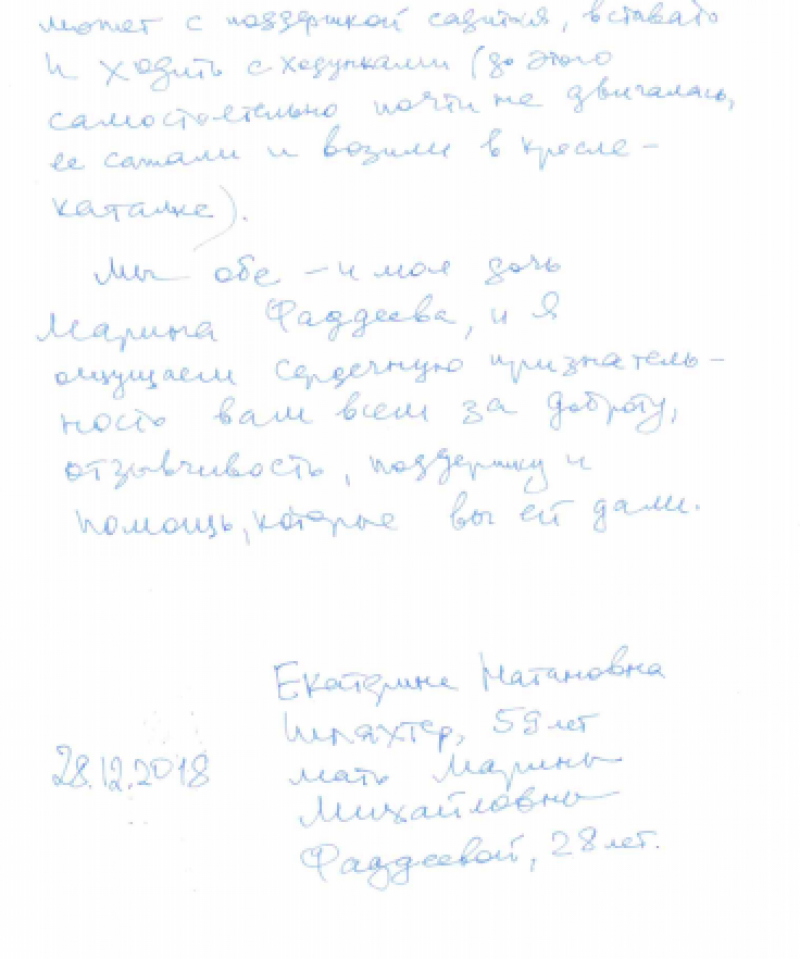 может с поддержкой садиться, вставать
и ходить с ходунками (до этого
самостоятельно почти не двигалась,
ее сажали и возили в кресле-
каталке).
Мы обе - и моя дочь
Марина Фаддеева, и я
ощущаем сердечную признатель-
ность вам всем за доброту,
отзывчивость, поддержку и
помощь, которые вы ей дали.
Екатерина Натановна
Шляхтер, 59 лет
28.12.2018
мать Марины
Михайловны
Фаддеевой, 28 лет.